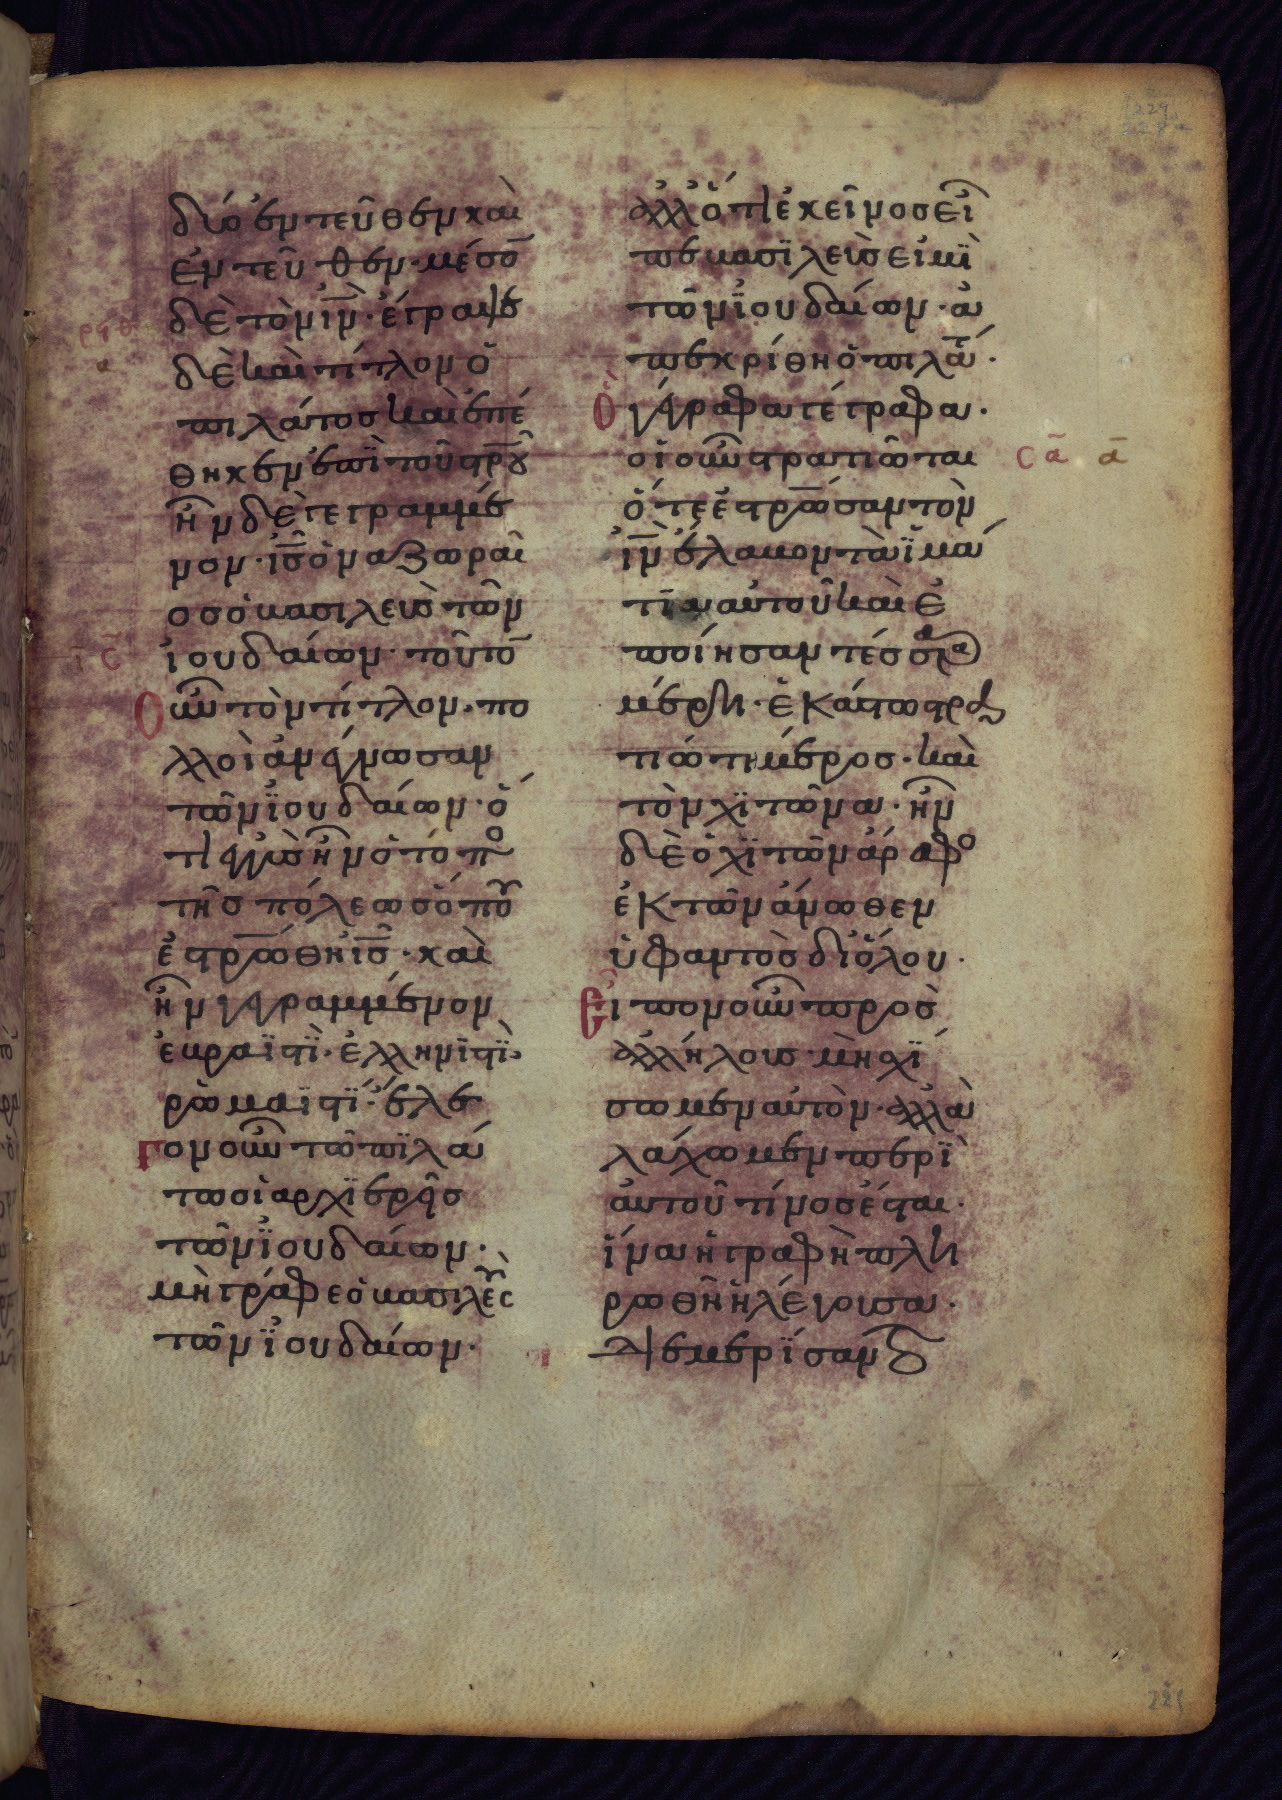 δύο ἐντεῦθεν καὶ
ἐντεῦθεν· μέσο̅
δὲ τὸν ι̅ν̅· ἔγραψε
δὲ καὶ τίτλον ὁ
πιλάτος καὶ ἐπέ
θηκεν ἐπὶ τοῦ σ̅ρ̅ου
ἦν δὲ γεγραμμέ
νον· ι̅ς̅ ὁ ναζωραῖ
ος ὁ βασιλεὺς τῶν
ἰουδαίων· τοῦτο̅
οὖν τὸν τίτλον· πο
λλοὶ ἀνέγνωσαν
τῶν ἰουδαίων· ὅ
τι ἐγγὺς ἦν ὁ τόπο
τῆς πόλεως ὅπου
ἐσ̅ρ̅ώθη ι̅ς̅· καὶ
ἦν γεγραμμένον
ἑβραϊστὶ· ἑλληνιστὶ·
ῥωμαϊστὶ· ἔλε
γον οὖν τῶ πιλά
τω οἱ ἀρχιερεῖς
τῶν ἰουδαίων·
μὴ γράφε ὁ βασιλεὺς
τῶν ἰουδαίων·
ἀλλ' ὅτι ἐκεῖνος εἶ
πε βασιλεύς εἰμὶ
τῶν ἰουδαίων· ἀ
πεκρίθη ὁ πιλάτ·
ὃ γέγραφα γέγραφα·
οἱ οὖν στρατιῶται
ὅτε ἐσ̅ρ̅ώσαν τὸν
ι̅ν̅ ἔλαβον τὰ ἱμά
τια αὐτοῦ καὶ ἐ
ποίησαν τέσσαρα
μέρη· ἑκάστω στρα
τιώτη μέρος· καὶ
τὸν χιτῶνα· ἦν
δὲ ὁ χιτῶν ἄραφο
ἐκ τῶν ἄνωθεν
ὑφαντὸς δι' ὅλου·
εἶπον οὖν πρὸς
ἀλλήλους· μὴ σχί
σωμεν αὐτὸν· ἀλλὰ
λάχωμεν περὶ
αὐτοῦ τίνος ἔσται·
ἵνα ἡ γραφὴ πλη
ρωθῆ ἡ λέγουσα·
διεμερίσαντο